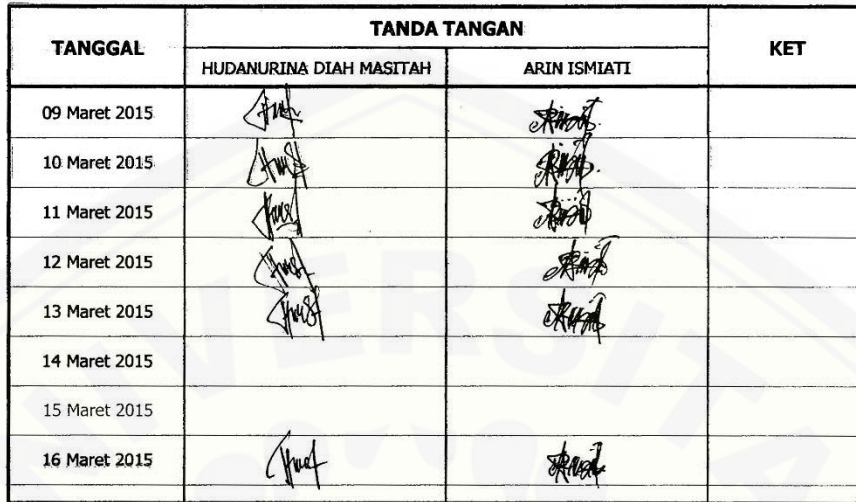 TANGGAL TANDA TANGAN KET
HUDANURINA DIAH MASITAH ARIN ISMIATI
09 Maret 2015
10 Maret 2015
11 Maret 2015
12 Maret 2015
13 Maret 2015
14 Maret 2015
15 Maret 2015
16 Maret 2015
UNIVERSITA